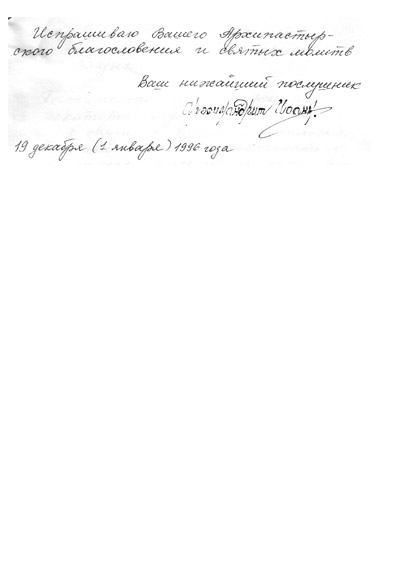 Испрашиваю Вашего Архипастыр-
ского благословения и святых молитв
Ваш нижайший послушник
Архимандрит Иоанн.
19 декабря (1 января) 1996 года